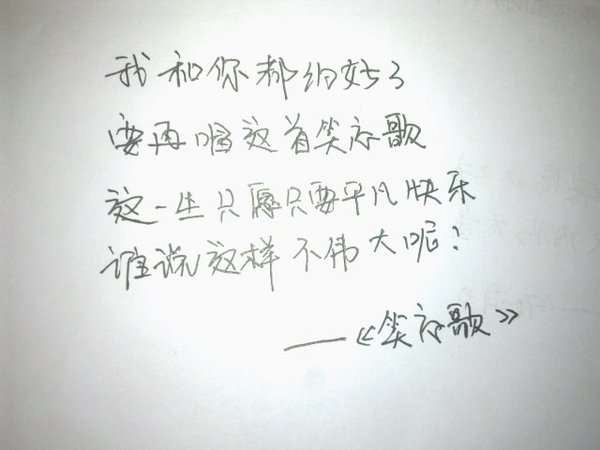 我和你都约好了
要再唱这首笑忘歌
这一生只愿只要平凡快乐
谁说这样不伟大呢?
——《笑忘歌》